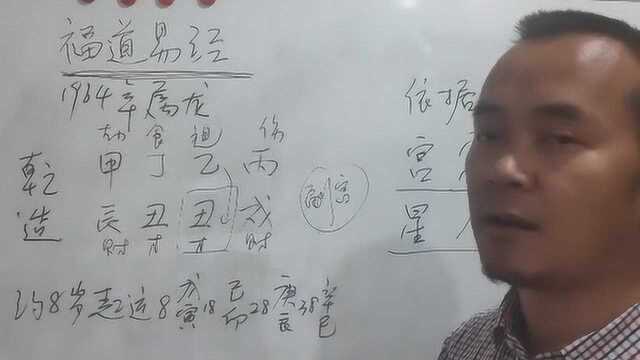 福道易经
1964年属龙
劫 食 伤
乾造
甲 丁 乙 丙
辰 丑 丑 戌
财 才 才 财
约8岁起运 8戊寅 18己卯 28庚辰 38辛巳
依据
宫
星